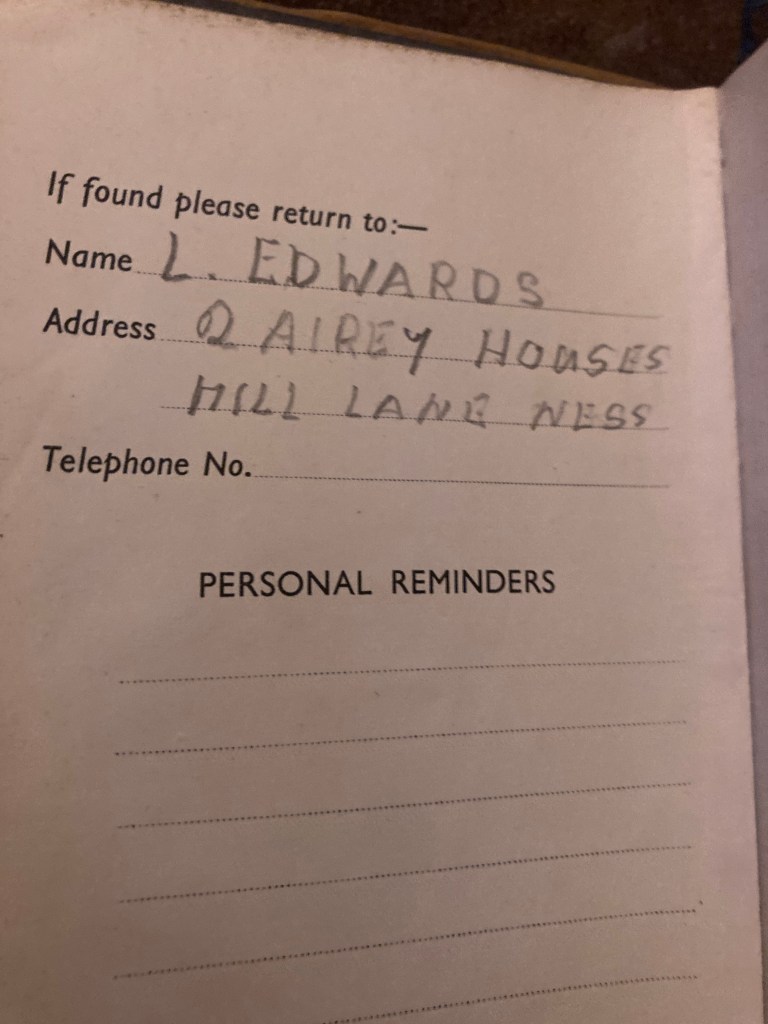 If found please return to:—
Name L. EDWARDS
Address 2 AIREY HOUSES
MILL LANE NESS
Telephone No.
PERSONAL REMINDERS